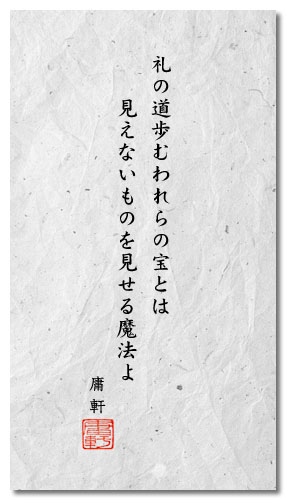 礼の道歩むわれらの宝とは
見えないものを見せる魔法よ
庸軒
庸軒